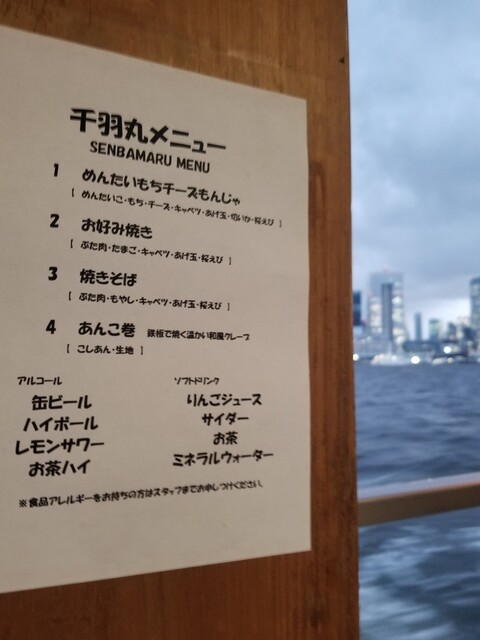 千羽丸メニュー
SENBAMARU MENU
1 めんたいもちチーズもんじゃ
[ めんたいこ・もち・チーズ・キャベツ・あげ玉・切いか・桜えび ]
2 お好み焼き
[ ぶた肉・たまご・キャベツ・あげ玉・桜えび ]
3 焼きそば
[ ぶた肉・もやし・キャベツ・あげ玉・桜えび ]
4 あんこ巻 鉄板で焼く温かい和風クレープ
[ こしあん・生地 ]
アルコール
缶ビール
ハイボール
レモンサワー
お茶ハイ
ソフトドリンク
りんごジュース
サイダー
お茶
ミネラルウォーター
※食品アレルギーをお持ちの方はスタッフまでお申しつけください。